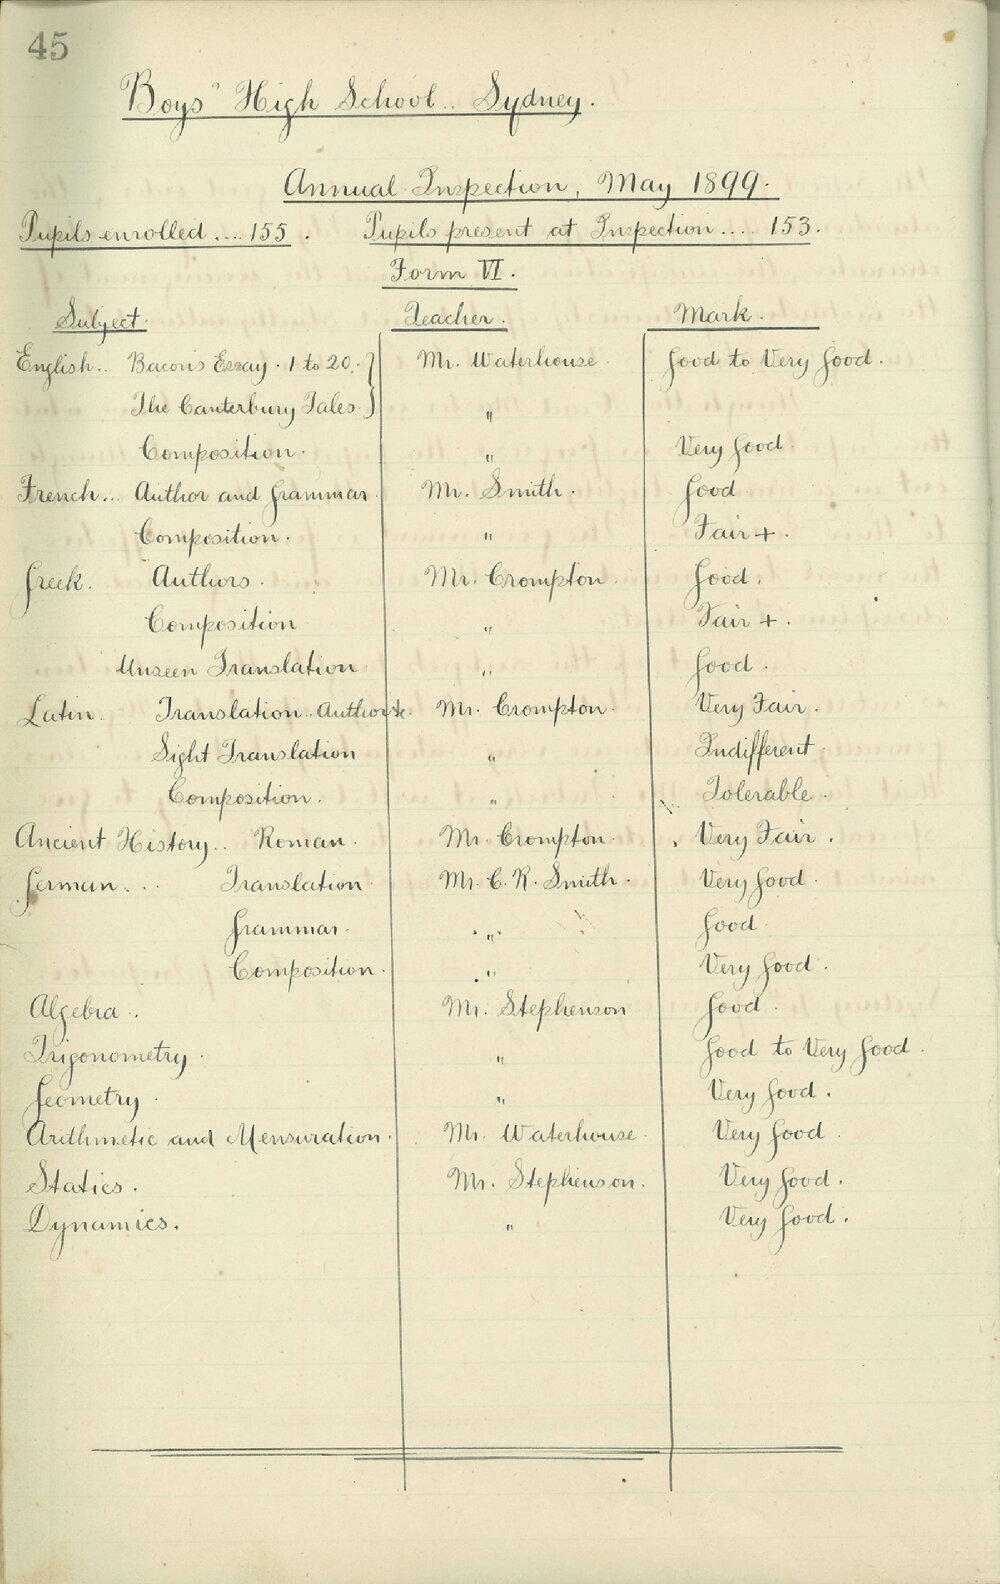 45
Boys' High School.. Sydney.
Annual Inspection, May 1899.
Pupils enrolled .... 155. Pupils present at Inspection .... 153.
Form VI.
Subject. Teacher. Mark.
English.. Bacon's Essay. 1 to 20.} Mr. Waterhouse Good to Very Good.
The Canterbury Tales.} "
Composition. " Very Good
French... Author and Grammar. Mr. Smith. Good
Composition. " Fair +.
Greek. Authors. Mr. Crompton. Good.
Composition " Fair +.
Unseen Translation. " Good.
Latin. Translation.. Mr. Crompton. Very Fair.
Sight Translation " Indifferent.
Composition. " Tolerable.
Ancient History.. Roman. Mr. Crompton. Very Fair.
German... Translation. Mr. C. R. Smith. Very Good.
Grammar. " Good
Composition. " Very Good.
Algebra.. Mr. Stephenson Good.
Trigonometry. " Good to Very Good.
Geometry. " Very Good.
Arithmetic and Mensuration. Mr. Waterhouse. Very Good.
Statics. Mr. Stephenson. Very Good.
Dynamics. " Very Good.